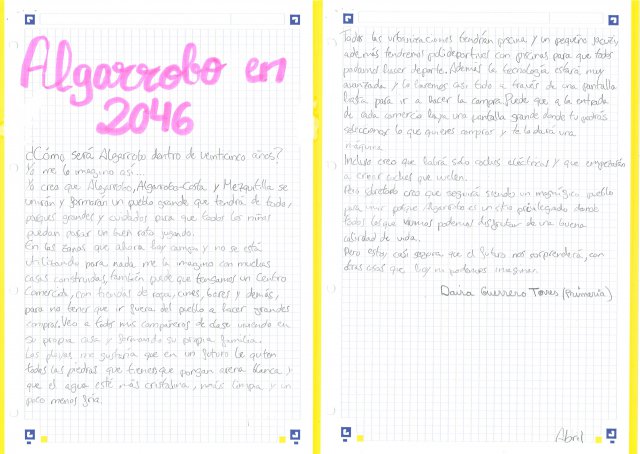 Algarrobo en
2046
¿Cómo será Algarrobo dentro de venticinco años?
Yo me lo imagino así...
Yo creo que Algarrobo, Algarrobo-Costa y Mezquitilla se
unirán y formarán un pueblo grande que tendrá de todo,
parques grandes y cuidados para que todos los niños
puedan pasar un buen rato jugando.
En las zonas que ahora hay campo y no se está
utilizando para nada me la imagino con muchas
casas construidas, también puede que tengamos un Centro
Comercial, con tiendas de ropa, cines, bares y demás,
para no tener que ir fuera del pueblo a hacer grandes
compras. Veo a todos mis compañeros de clase viviendo en
su propia casa y formando su propia familia.
Las playas me gustaría que en un futuro le quiten
todas las piedras que tienen que pongan arena blanca y
que el agua esté más cristalina, más limpia y un
poco menos fría.
Todas las urbanizaciones tendrían piscina y un pequeño jacuzi,
además tendremos polideportivos con piscinas para que todos
podamos hacer deporte. Además la tecnología estará muy
avanzada y lo haremos casi todo a través de una pantalla
hasta para ir a hacer la compra. Puede que a la entrada
de cada comercio haya una pantalla grande donde tu podrás
seleccionar lo que quieres comprar y te lo dará una
máquina.
Incluso creo que habrá solo coches eléctricos y que empezarán
a crear coches que vuelen.
Pero sobretodo creo que seguirá siendo un magnífico pueblo
para vivir porque Algarrobo es un sitio privilegiado donde
todos los que vivimos podemos disfrutar de una buena
calidad de vida.
Pero estoy casi segura que el futuro nos sorprenderá, con
otras cosas que hoy no podemos imaginar.
Daira Guerrero Torres (Primaria)
Abril